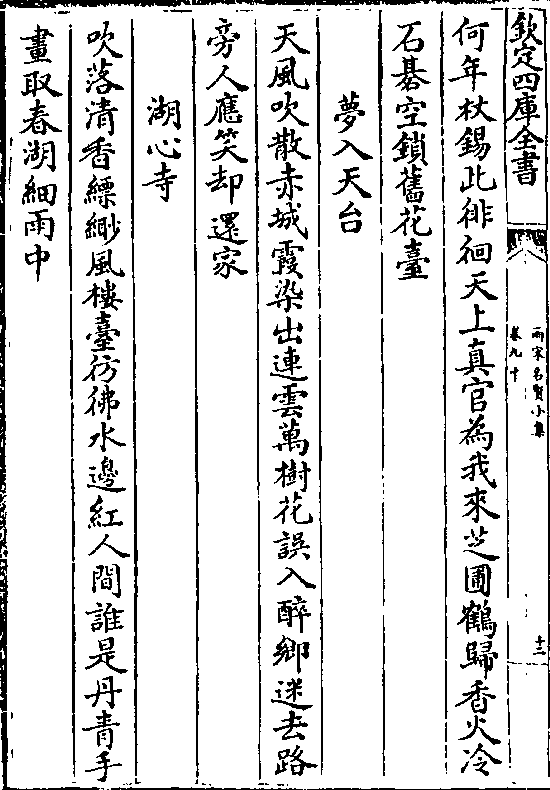 欽定四庫全書
兩宋名賢小集
卷九十
十二
何年杖錫此徘徊天上真官為我來芝圃鶴歸香火冷
石棊空鎖舊花臺
夢入天台
天風吹散赤城霞染出連雲萬樹花誤入醉鄉迷去路
旁人應笑却還家
湖心寺
吹落清香縹緲風樓臺彷彿水邊紅人間誰是丹青手
畫取春湖細雨中